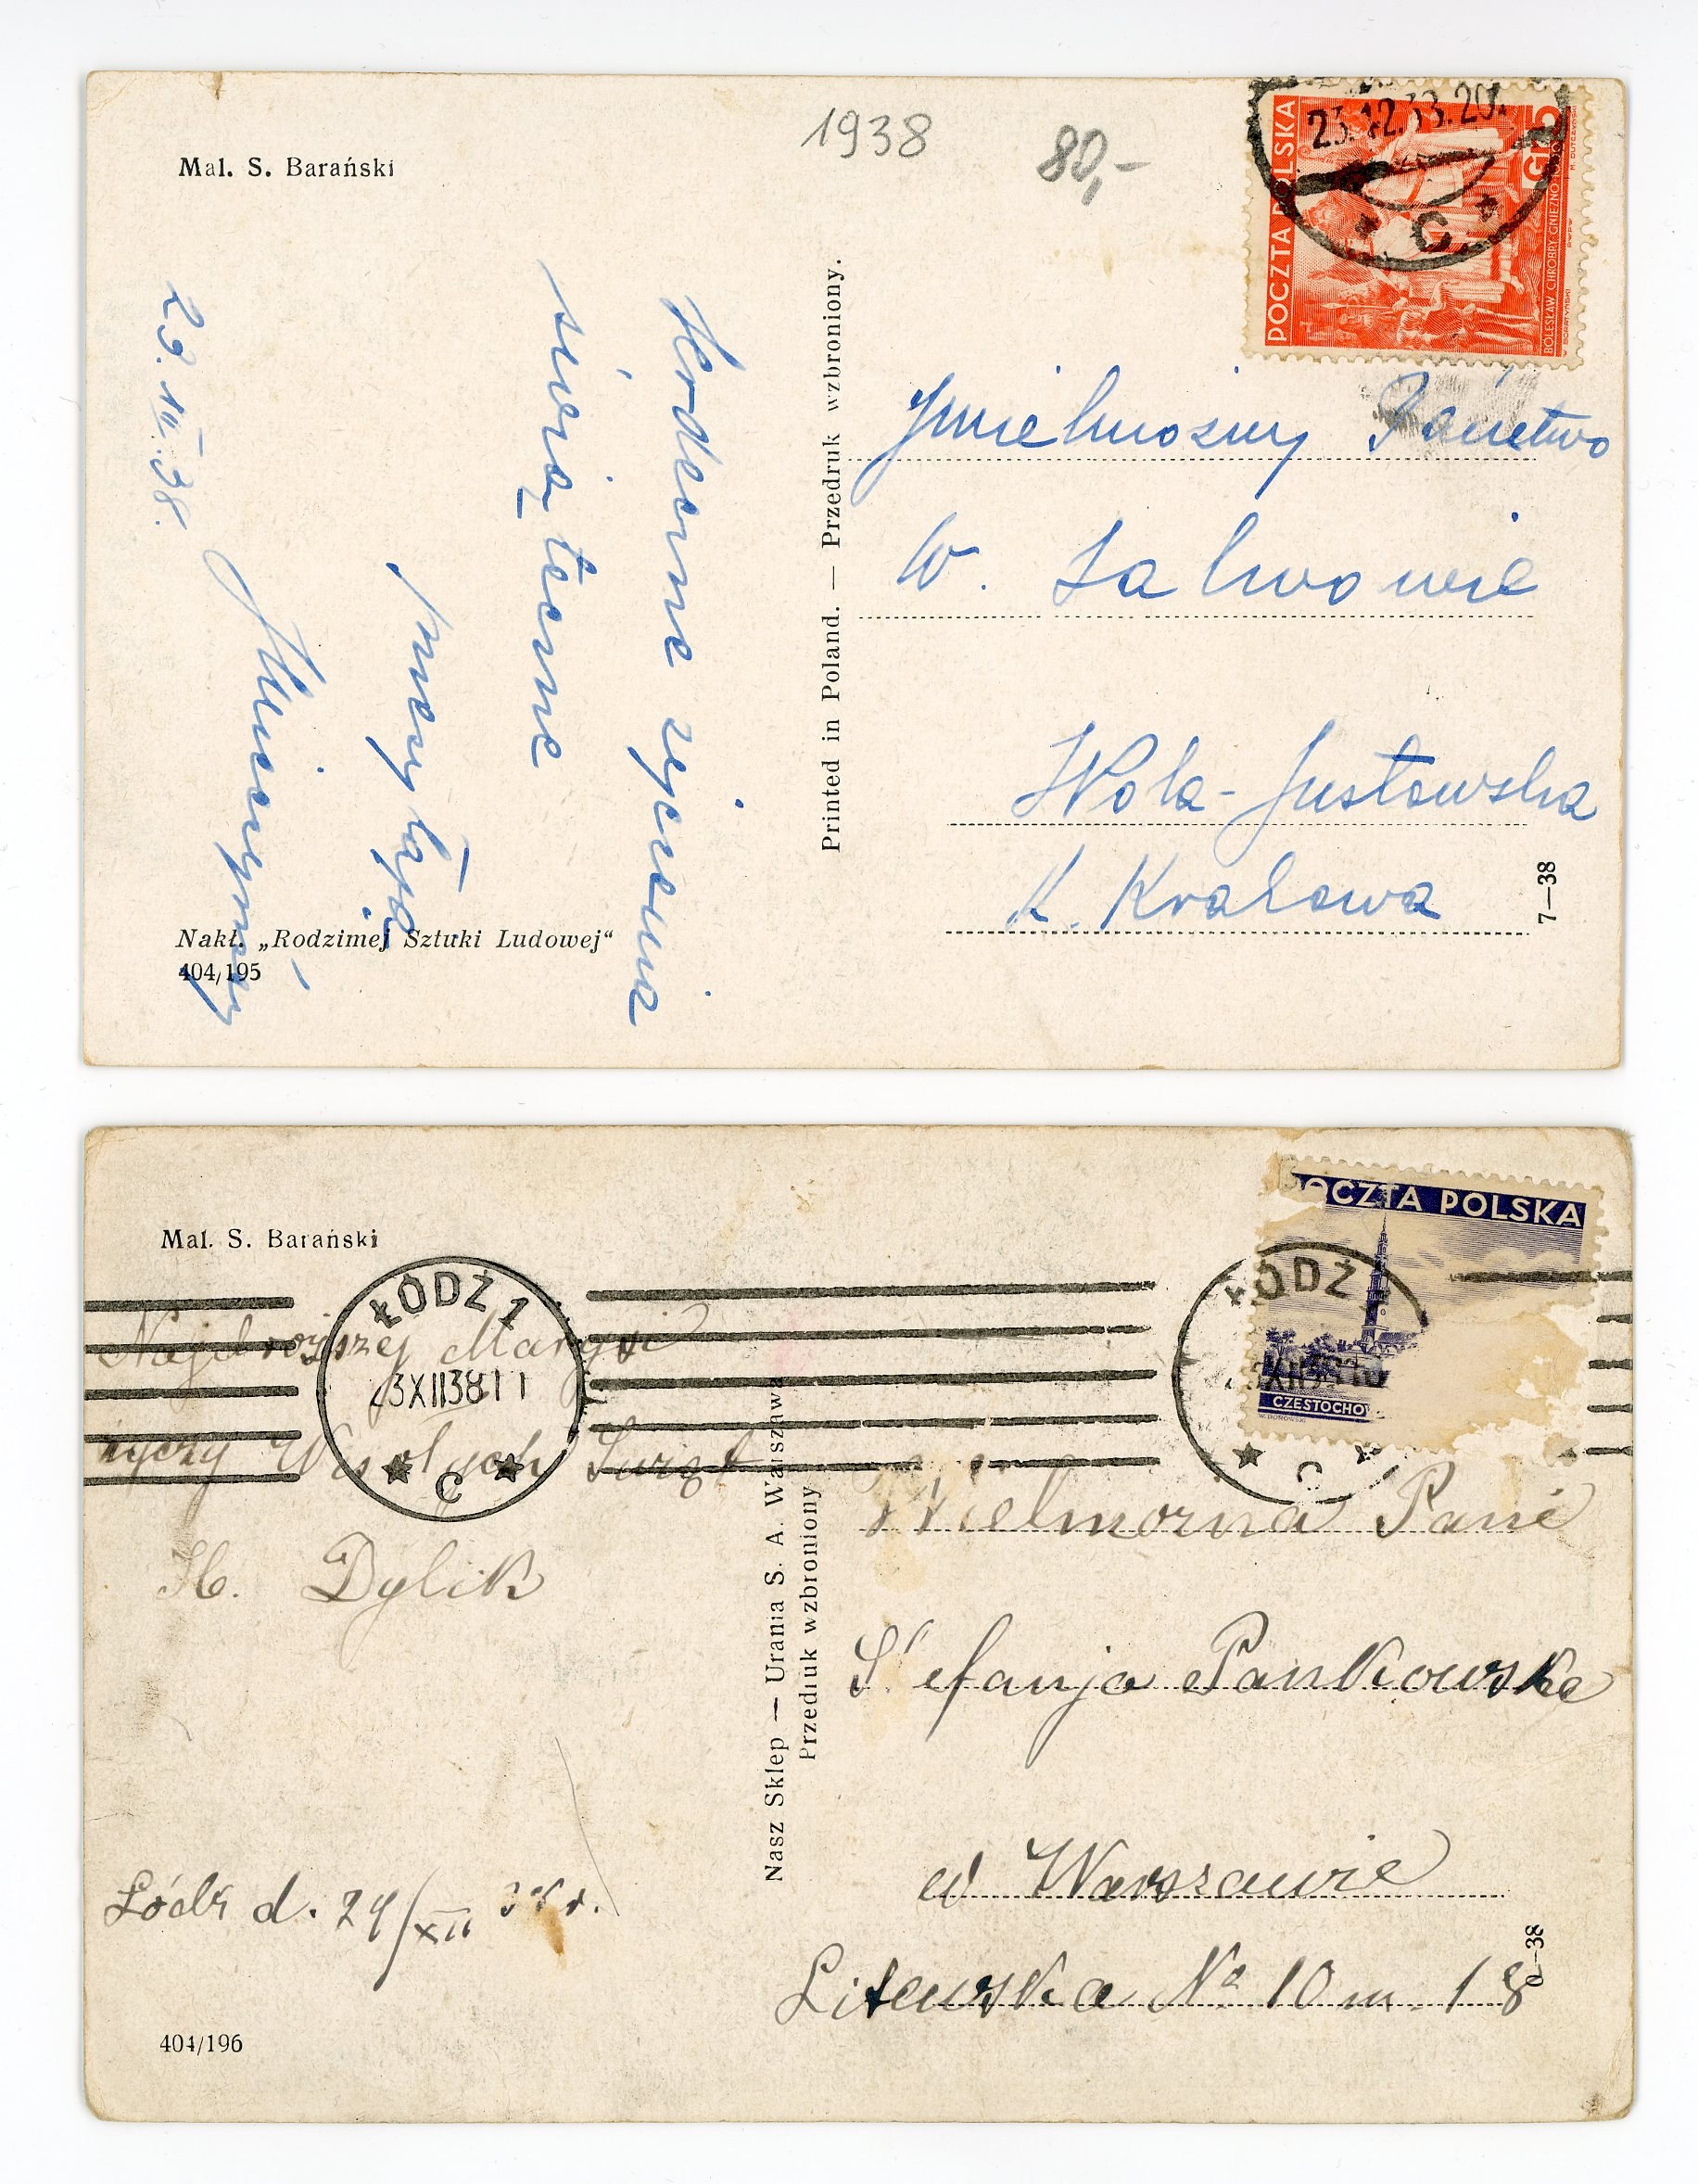 Mal. S. Barański
1938
80,-
POCZTA POLSKA
GR 5
BOLESŁAW CHROBRY GNIEZNO 1000
C
Serdeczne życzenia
świąteczne
przesyłają
23.XII.38.
Printed in Poland. — Przedruk wzbroniony.
Nakł. „Rodzimej Sztuki Ludowej“
404/195
Jmielmożny Państwo
W.
Wola-Justowska
k. Krakowa
7—38
Mal. S. Barański
ŁÓDŹ 1
23XII3811
C
Najdroższej Marysi
życzy Wesołych Świąt
H. Dylik
Łódź d. 24/XII 38 r.
404/196
Nasz Sklep — Urania S. A. Warszawa
Przedruk wzbroniony
POCZTA POLSKA
CZĘSTOCHO
ŁÓDŹ
C
Wielmożna Pani
Stefanja Pankowska
w Warszawie
Litewska № 10 m. 18